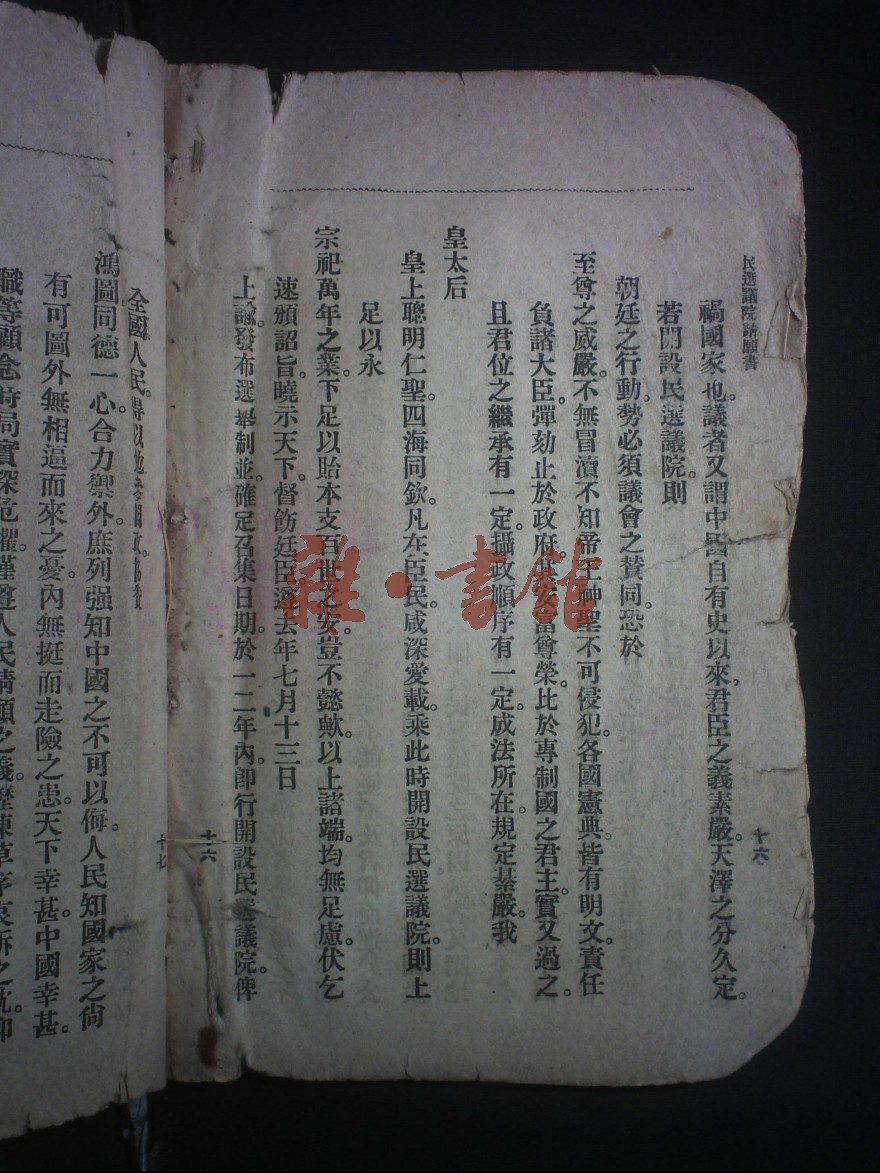 民選議院請願書
十六
禍國家也。議者又謂中國自有史以來。君臣之義素嚴。天澤之分久定。
若開設民選議院。則
朝廷之行動。勢必須議會之贊同。恐於
至尊之威嚴。不無冒瀆。不知帝王神聖不可侵犯。各國憲典。皆有明文。責任
負諸大臣。彈劾止於政府。其安富尊榮。比於專制國之君主。實又過之。
且君位之繼承有一定。攝政順序有一定。成法所在。規定綦嚴。我
皇太后
皇上聰明仁聖。四海同欽。凡在臣民。咸深愛戴。乘此時開設民選議院。則上
足以永
宗祀萬年之業。下足以貽本支百世之安。豈不懿歟。以上諸端。均無足慮。伏乞
速頒詔旨。曉示天下。督飭廷臣。遵去年七月十三日
上諭。發布選舉制。並確定召集日期。於一二年內。卽行開設民選議院。俾
十六
十七
全國人民。得以
鴻圖同德一心。合力禦外。庶列强知中國之不可以侮。人民知國家之尙
有可圖。外無相逼而來之憂。內無挺而走險之患。天下幸甚。中國幸甚。
職等顧念時局。實深危懼。謹遵人民請願之義。瀝陳
雜·書館